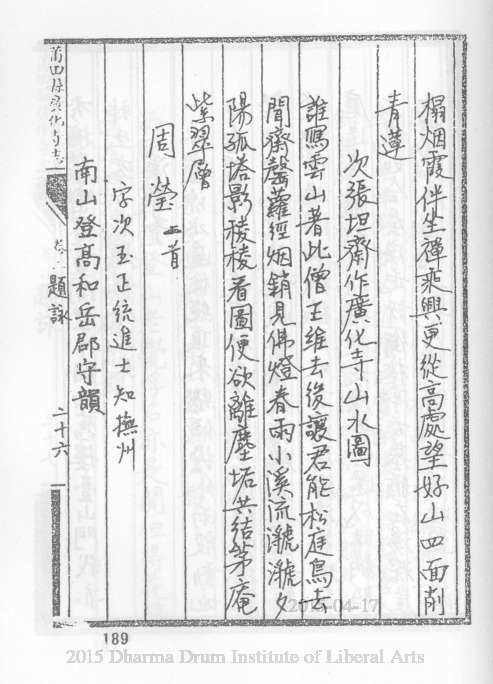 榻烟霞伴坐禪乘興更從高處望好山四面削
青蓮
次張坦齋作廣化寺山水圖
誰寫雲山著此僧王維去後讓君能松庭鳥去
聞齋磬蘿經烟銷見佛燈春雨小溪流漉漉夕
陽孤塔影稜稜看圖便欲離塵垢共結茅庵
紫翠層
周瑩二首
字次玉正統進士知撫州
南山登高和岳郡守韻
莆田縣廣化寺志
卷
題詠
二十六
189
2015 Dharma Drum Institute of Liberal Arts